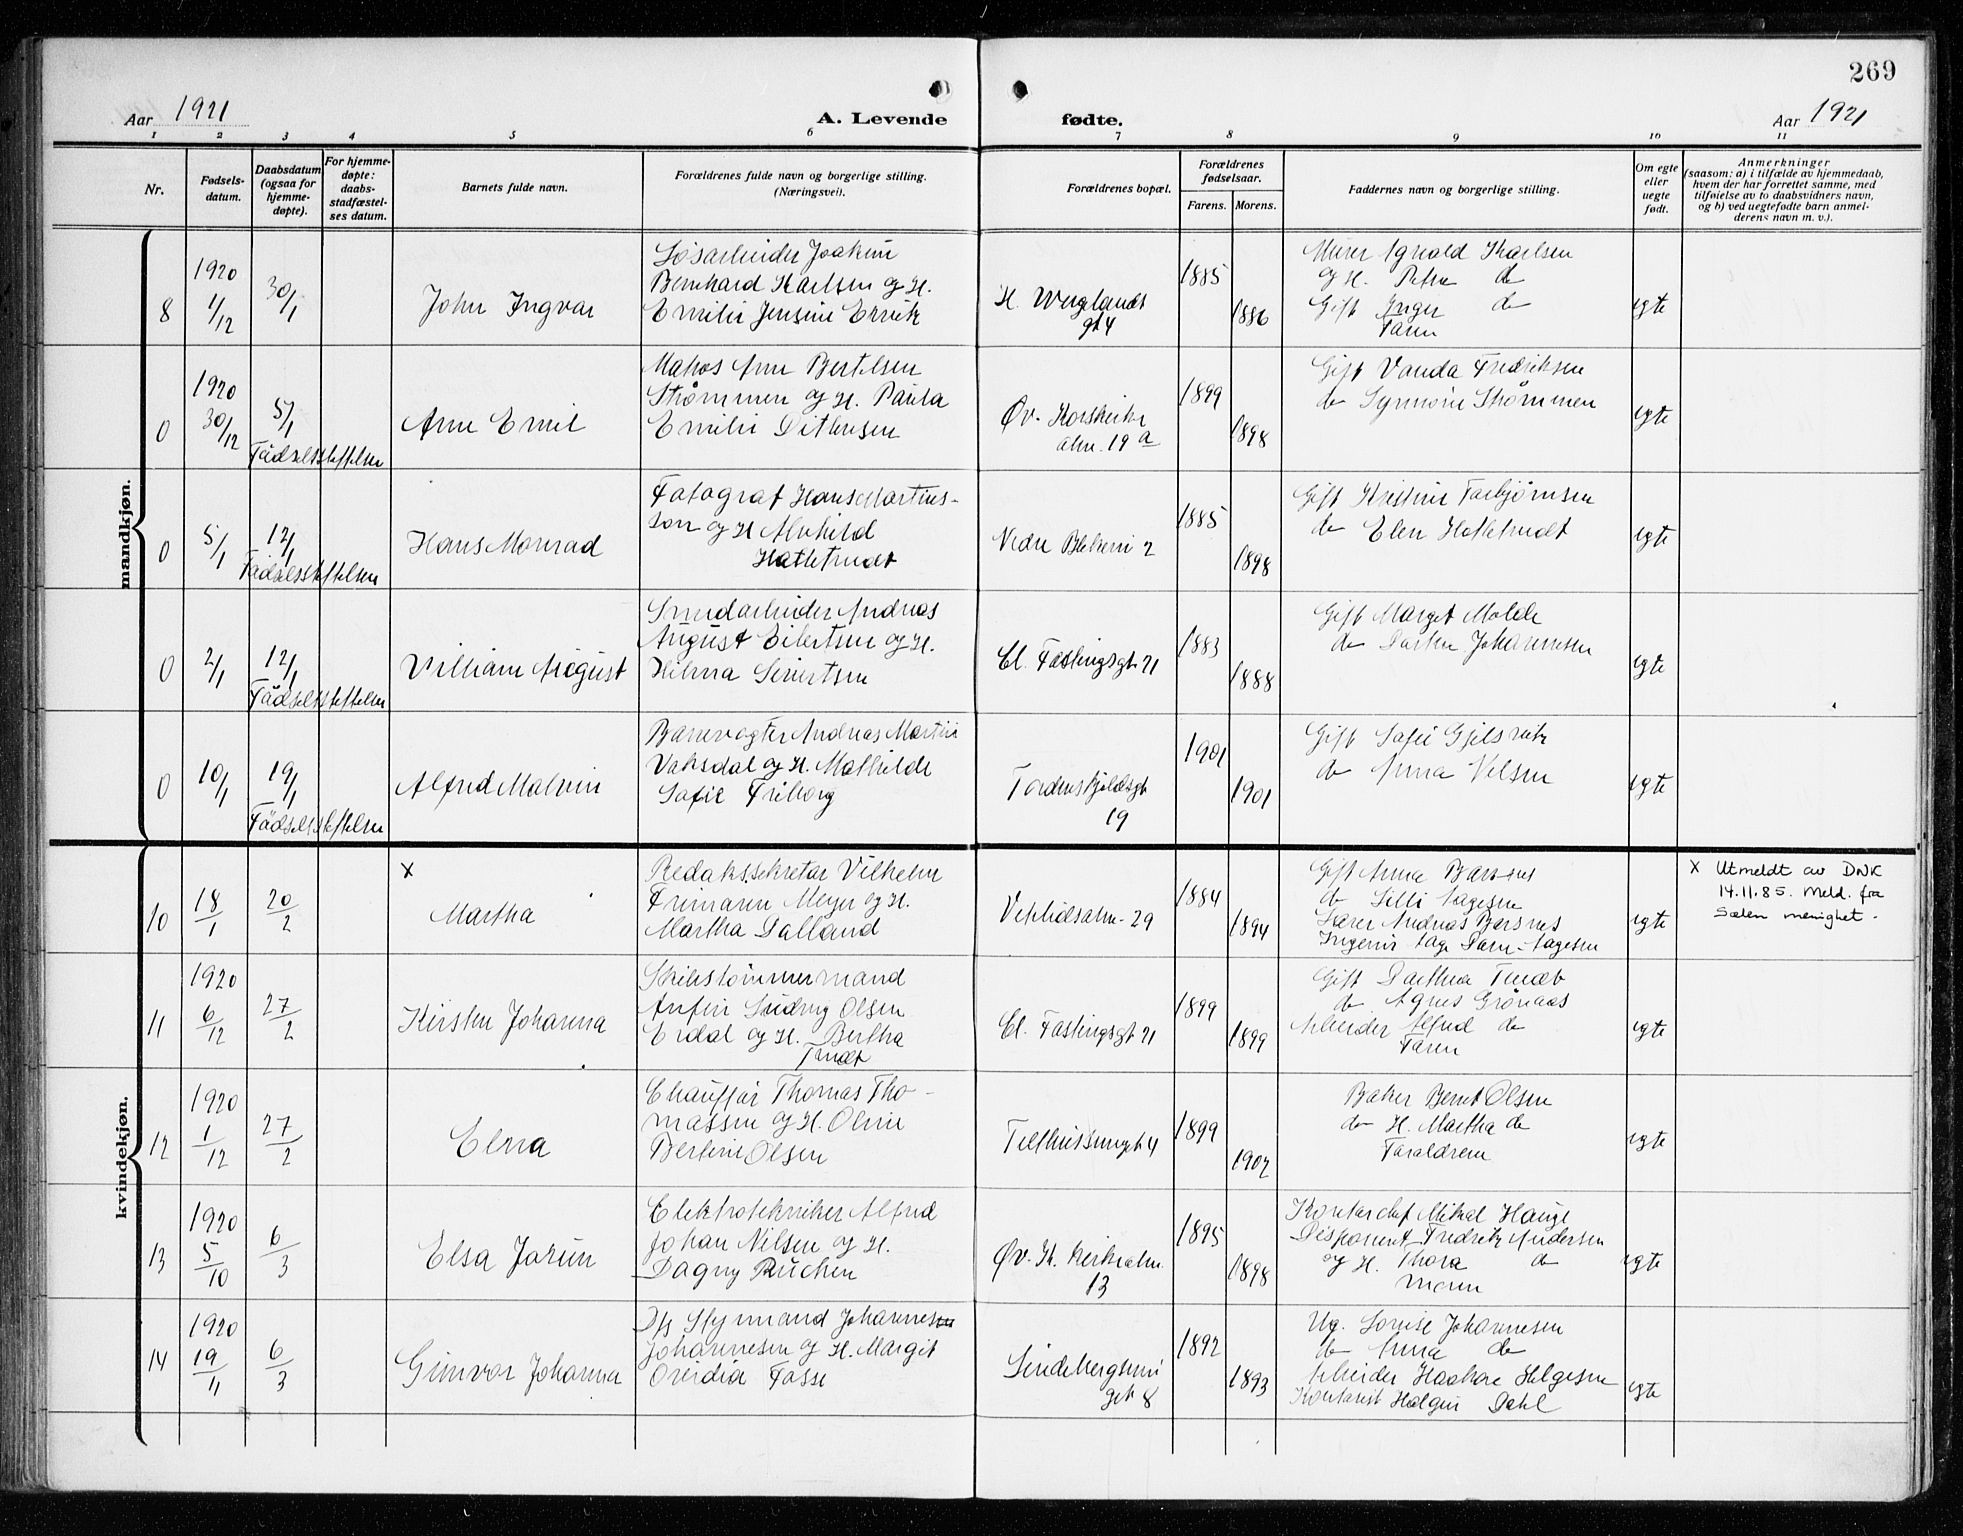 269
Aar 1921
A. Levende
fødte.
Aar 1921
1 2 3 4 5 6 7 8 9 10 11
Nr.
Fødsels-
datum.
Daabsdatum
(ogsaa for
hjemme-
døpte).
For hjemme-
døpte:
daabs-
stadfæstel-
ses datum.
Barnets fulde navn.
Forældrenes fulde navn og borgerlige stilling.
(Næringsvei).
Forældrenes bopæl.
Forældrenes
fødselsaar.
Farens. Morens.
Faddernes navn og borgerlige stilling.
Om egte
eller
uegte
født.
Anmerkninger
(saasom: a) i tilfælde av hjemmedaab,
hvem der har forrettet samme, med
tilføielse av to daabsvidners navn,
og b) ved uegtefødte barn anmel-
derens navn m. v.).
mandkjøn.
8
1920
4/12
30/1
John Ingvar
Løsarbeider Joakim
Bernhard Karlsen og H.
Emilie Jensine
H. Wergelands
gt 4
1885
1886
Murer Karlsen
og H. Petra do
Gift Inger do
Faren
egte
0
1920
30/12
5/1
Fødselsstiftelsen
Arne Emil
Matros Arne Bertelsen
Strømmen og H. Paula
Emilie
Øv. Korskirke
alm. 19 a
1899
1898
Gift Vanda Fredriksen
do Synnøve Strømmen
egte
0
5/1
12/1
Fødselsstiftelsen
Hans Monrad
Fotograf Hans Martins-
son og H. Alvhild
Hatletvedt
Nedre Blekevei 2
1885
1898
Gift Kristine Torbjørnsen
do Elen Hatletvedt
egte
0
2/1
12/1
Fødselsstiftelsen
William August
Smedarbeider Andreas
August Eilertsen og H.
Hilma Sivertsen
Cl. Fastingsgt 21
1883
1888
Gift Marget Molde
do Johannesen
egte
0
10/1
19/1
Fødselsstiftelsen
Alfred Malvin
Banevogter Andreas Martin
Vaksdal og H. Mathilde
Sofie Friborg
Tordenskjoldsgt
19
1901
1901
Gift Sofie
do Anna Nilsen
egte
kvindekjøn.
10
18/1
20/2
x
Martha
Redaks.sekretær Vilhelm
Frimann Meyer og H.
Martha Dalland
Vestlidsalm. 29
1884
1894
Gift Anna Barsnes
do Lilli Aagesen
Lærer Andreas Barsnes
Ingeniør Aage Aagesen
egte
x Utmeldt av DNK
14.11.85. Meld. fra
Sælen menighet.
11
1920
6/12
27/2
Kirsten Johanna
Skibstømmermand
Anfin Olsen
Eidal og H. Bertha
Tvedt
Cl. Fastingsgt 21
1899
1899
Gift Tvedt
do Agnes Grønaas
Arbeider Alfred do
Faren
egte
12
1920
1/12
27/2
Elna
Chauffør Thomas Tho-
massen og H. Oline
Bertine Olsen
gt 4
1899
1902
Baker Bernt Olsen
do H. Martha do
Forældrene
egte
13
1920
5/10
6/3
Elsa Jorun
Elektrotekniker Alfred
Johan Nilsen og H.
Dagny
Øv. K. kirkealm.
13
1895
1898
Kontorchef Mikal Hauge
Disponent Fredrik Andersen
og H. Thora do
Moren
egte
14
1920
19/11
6/3
Gunvor Johanna
D/s Styrmand Johannes
Johannesen og H. Margit
Ovidia Fosse
gt 8
1892
1893
Ug. Lovise Johannesen
do Anna do
Arbeider Haakon Helgesen
Kontorist Holger Dahl
egte